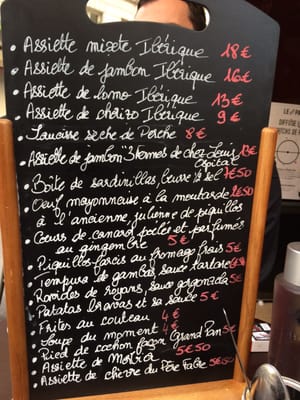 Assiette mixte Ibérique 18€
Assiette de jambon Ibérique 16€
Assiette de lomo Ibérique 13€
Assiette de chorizo Ibérique 9€
Saucisse sèche de Perche 8€
Assiette de jambon "3 fermes de chez Louis
Ospital 13€
Boîte de sardinillas beurre ½ sel 7€50
Oeuf mayonneuse à la moutarde 2€50
à l'ancienne, julienne de piquillos
Coeurs de canard poelés et parfumés
au gingembre 5€
Piquillos farcis au fromage frais 5€
Tempura de gambas sauce tartare
de sauce gorgonzola 5€
Patatas bravas et sa sauce 5€
Frites au couteau 4€
Soupe du moment 4€
Pied de cochon façon Grand Pan 5€
Assiette de 5€50
Assiette de chèvre du Père Fabre 5€50